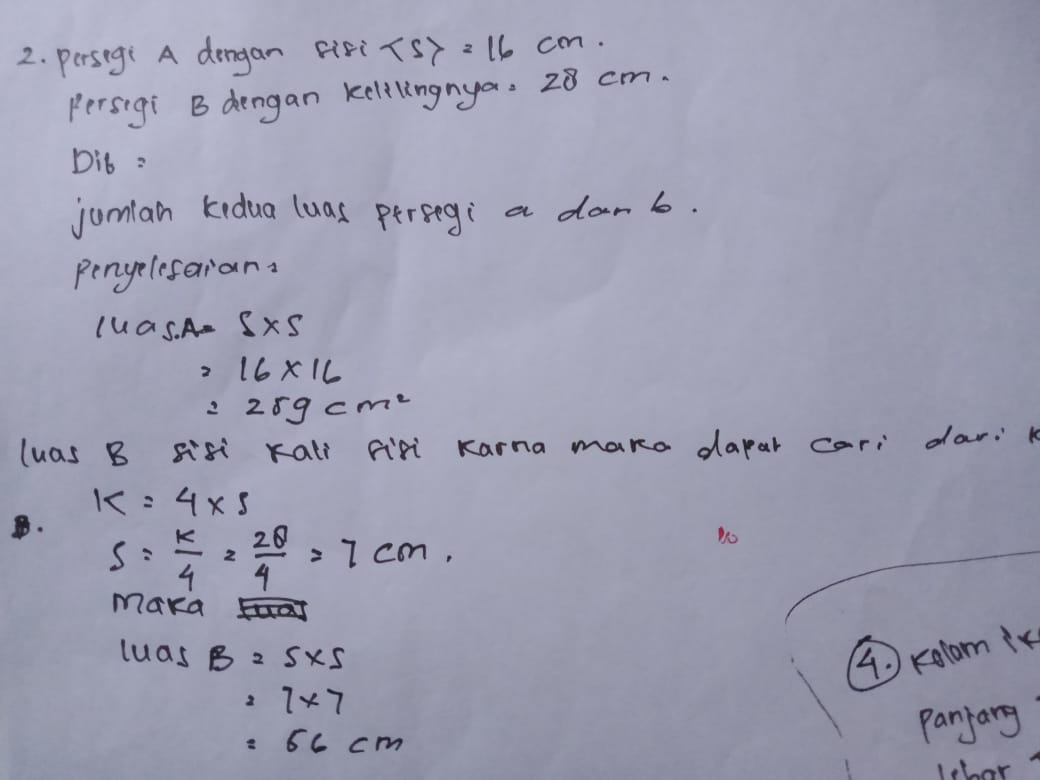 2. Persegi A dengan sisi (S) = 16 cm.
Persegi B dengan kelilingnya = 28 cm.
Dit =
jumlah kedua luas persegi a dan b.
Penyelesaian =
luas.A = S x S
= 16 x 16
= 259 cm²
luas B sisi kali sisi karna maka dapat cari dari k
K = 4 x S
B.
S = K/4 = 28/4 = 7 cm.
maka
luas B = S x S
= 7 x 7
= 56 cm
4. Kolam ik
panjang
lebar